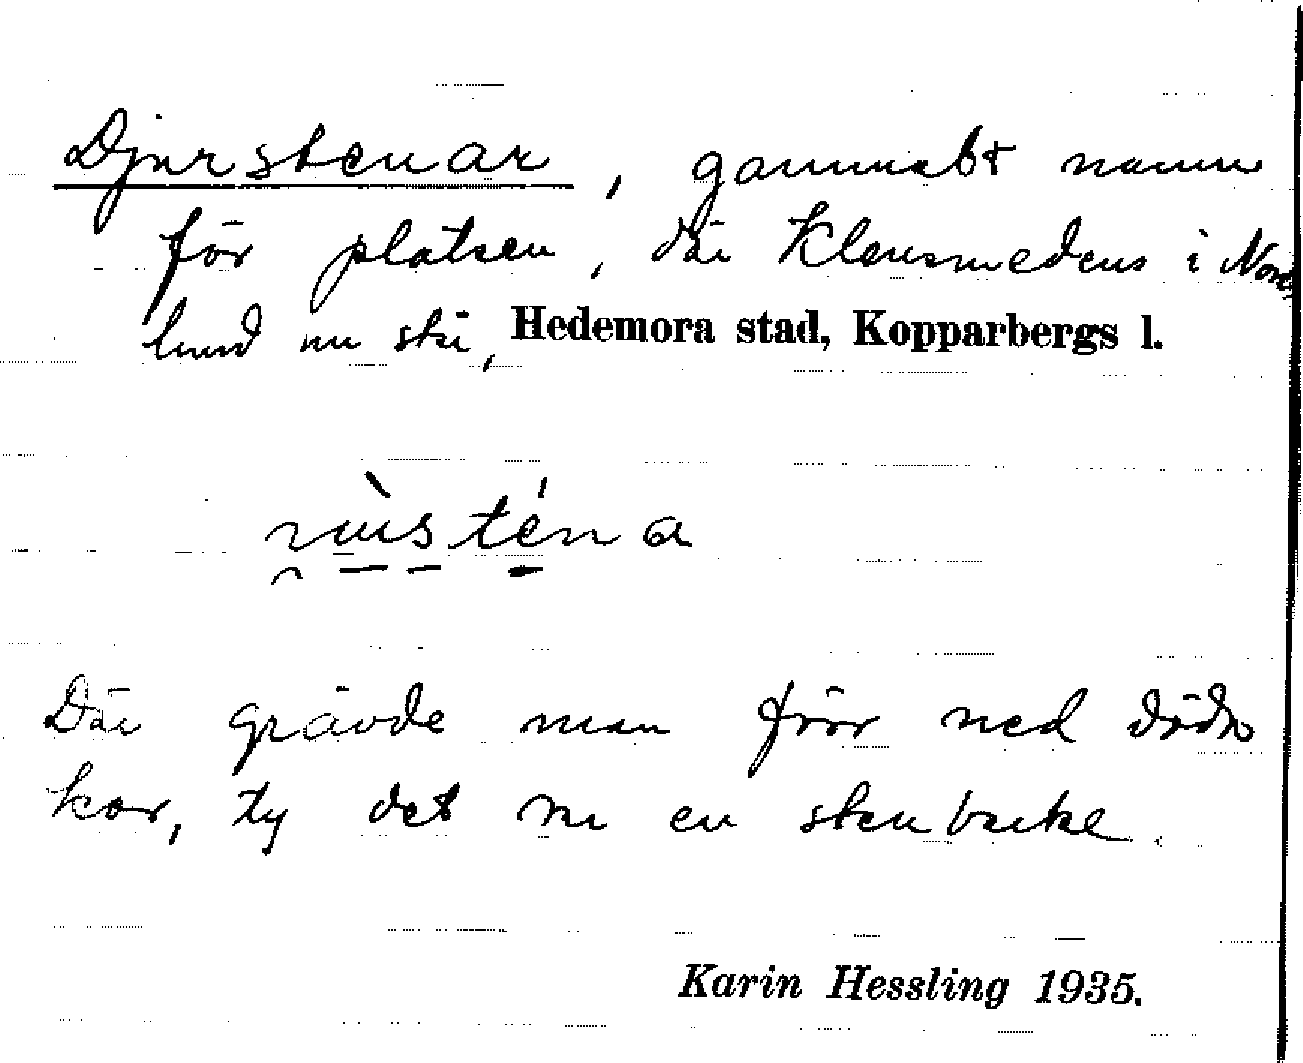 Djurstenar, gammalt namn
för platsen, där Klensmedens i Nord
lund nu stå, Hedemora stad, Kopparbergs l.
Där grävde man förr ned döda
kor, ty det en stenbacke.
Karin Hessling 1935.